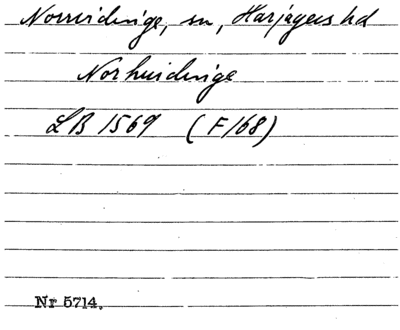 Norrvidinge, sn, Harjagers hd
Norhuidinge
LB 1569 (F168)
Nr 5714.